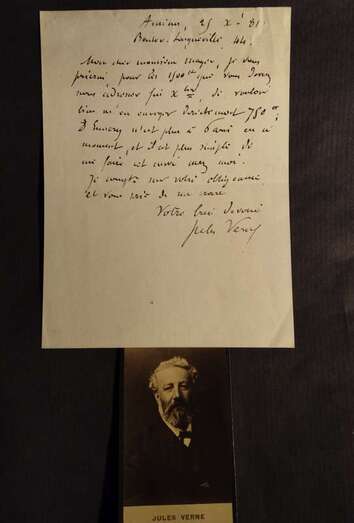 Amiens, 25 X
44.
Mon cher monsieur je vous
pour les 1500 que vous devez
nous adresser fin X bre, de vouloir
bien m'en envoyer directement 750 fr;
D'Ennery n'est plus à en ce
moment, et il est plus simple de
me faire cet envoi chez moi.
Je compte sur votre obligeance
et vous prie de me croire
Votre dévoué
Jules Verne
JULES VERNE